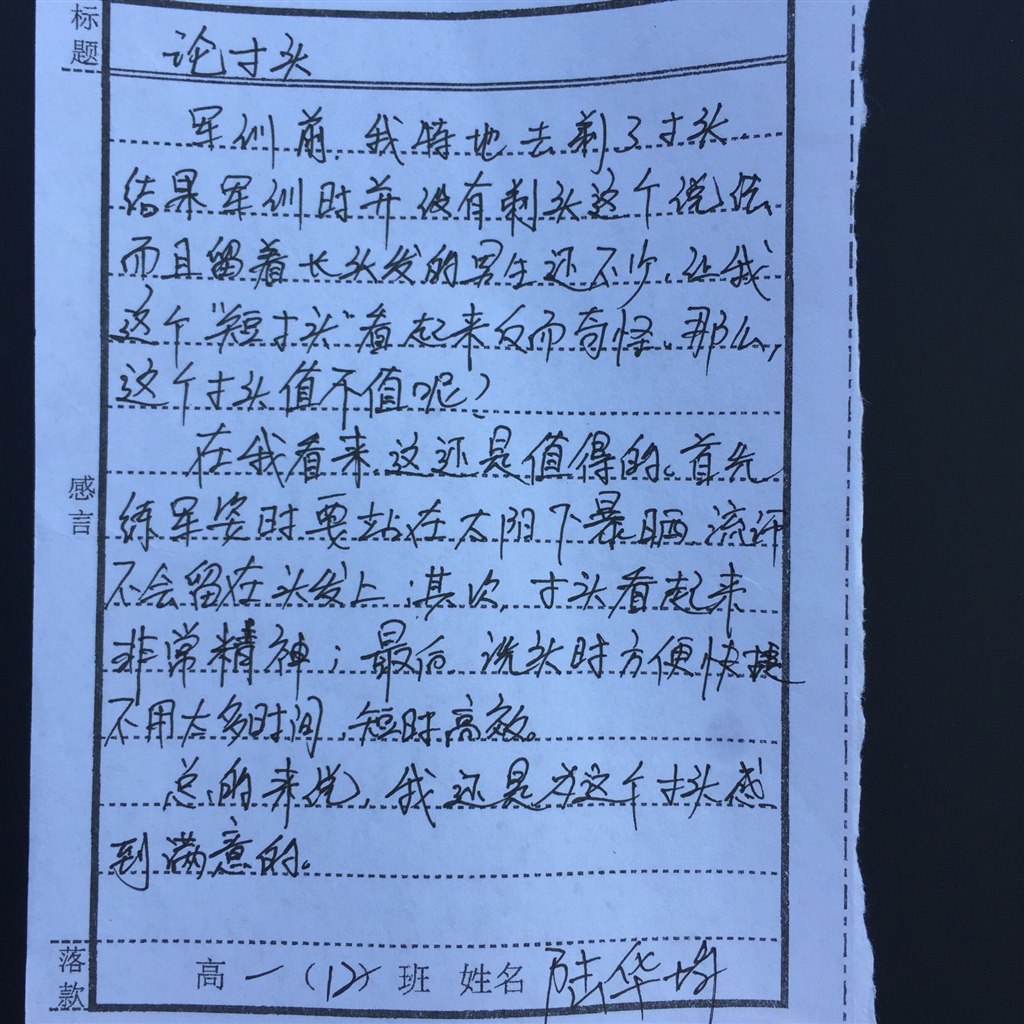 标题
论寸头
军训前,我特地去剃了寸头.
结果军训时并没有剃头这个说法,
而且留着长头发的男生还不少,让我
这个"短寸头"看起来反而奇怪。那么,
这个寸头值不值呢?
在我看来,这还是值得的。首先
感言
练军姿时要站在太阳下暴晒,流汗
不会留在头发上;其次,寸头看起来
非常精神;最后,洗头时方便快捷
不用太多时间,短时高效。
总的来说,我还是为这个寸头感
到满意的。
落款
高一(12)班 姓名 陆华